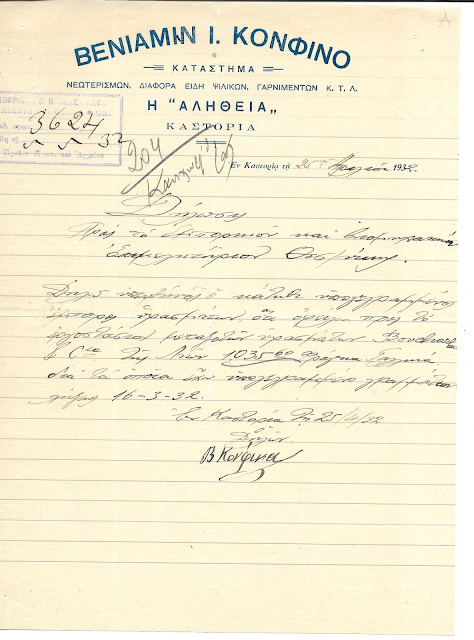 ΒΕΝΙΑΜΙΝ Ι. ΚΟΝΦΙΝΟ
ΚΑΤΑΣΤΗΜΑ
ΝΕΩΤΕΡΙΣΜΩΝ, ΔΙΑΦΟΡΑ ΕΙΔΗ ΨΙΛΙΚΩΝ, ΓΑΡΝΙΜΕΝΤΩΝ Κ. Τ. Λ.
Η "ΑΛΗΘΕΙΑ„
ΚΑΣΤΟΡΙΑ
3624
5 5 32
204
Ἐν Καστορίᾳ τῇ 25 Ἀπριλίου 1932.
Δήλωσις
Πρὸς τὸ ἐμπορικὸν καὶ βιομηχανικὸν
Ἐπιμελητήριον Θεσ/νίκης.
Δηλῶ ὑπευθύνως ὁ κάτωθι ὑπογεγραμμένος
ἔμπορος ὑφασμάτων ὅτι ὀφείλω πρὸς τὸ
ἐργοστάσιον μεταξωτῶν ὑφασμάτων
& Cie τῆς Λυών 10356 φράγκα Γαλλικά
διὰ τὰ ὁποῖα ἔχω ὑπογεγραμμένο γραμμάτιον
λήξεως 16-3-32.
Ἐν Καστορίᾳ τῇ 25/4/32
Ὁ Δηλῶν
Β Κονφινο